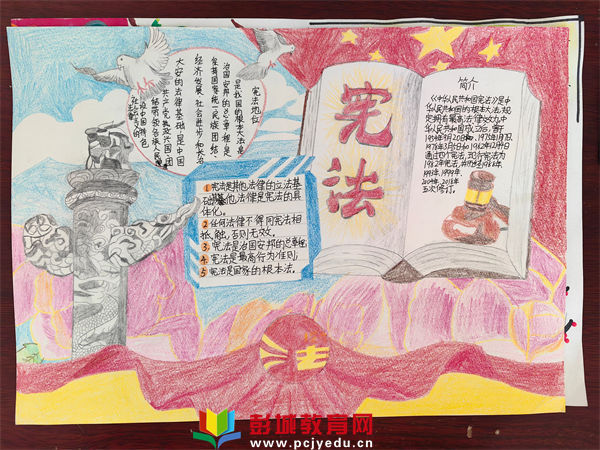 宪法地位
是我国的根本大法,是
治国安邦的总章程,是
保持国家统一、民族团结、
经济发展、社会进步和长治
久安的法律基础,是中国
共产党执政兴国、团
结带领各族人民
建设中国特色
社会主义的
宪法
简介
《中华人民共和国宪法》是中
华人民共和国的根本大法,规
定拥有最高法律效力。中
华人民共和国成立后,曾于
1954年9月20日、1975年1月17日、
1978年3月5日和1982年12月4日
通过四个宪法,现行宪法为
1982年宪法,并历经1988年、
1993年、1999年、
2004年、2018年
五次修订。
1 宪法是其他法律的立法基
础,其他法律是宪法的具
体化。
2 任何法律不得同宪法相
抵触,否则无效。
3、宪法是治国安邦的总章程
4 宪法是最高行为准则;
5 宪法是国家的根本法。
法
彭城教育网
www.pcjyedu.cn